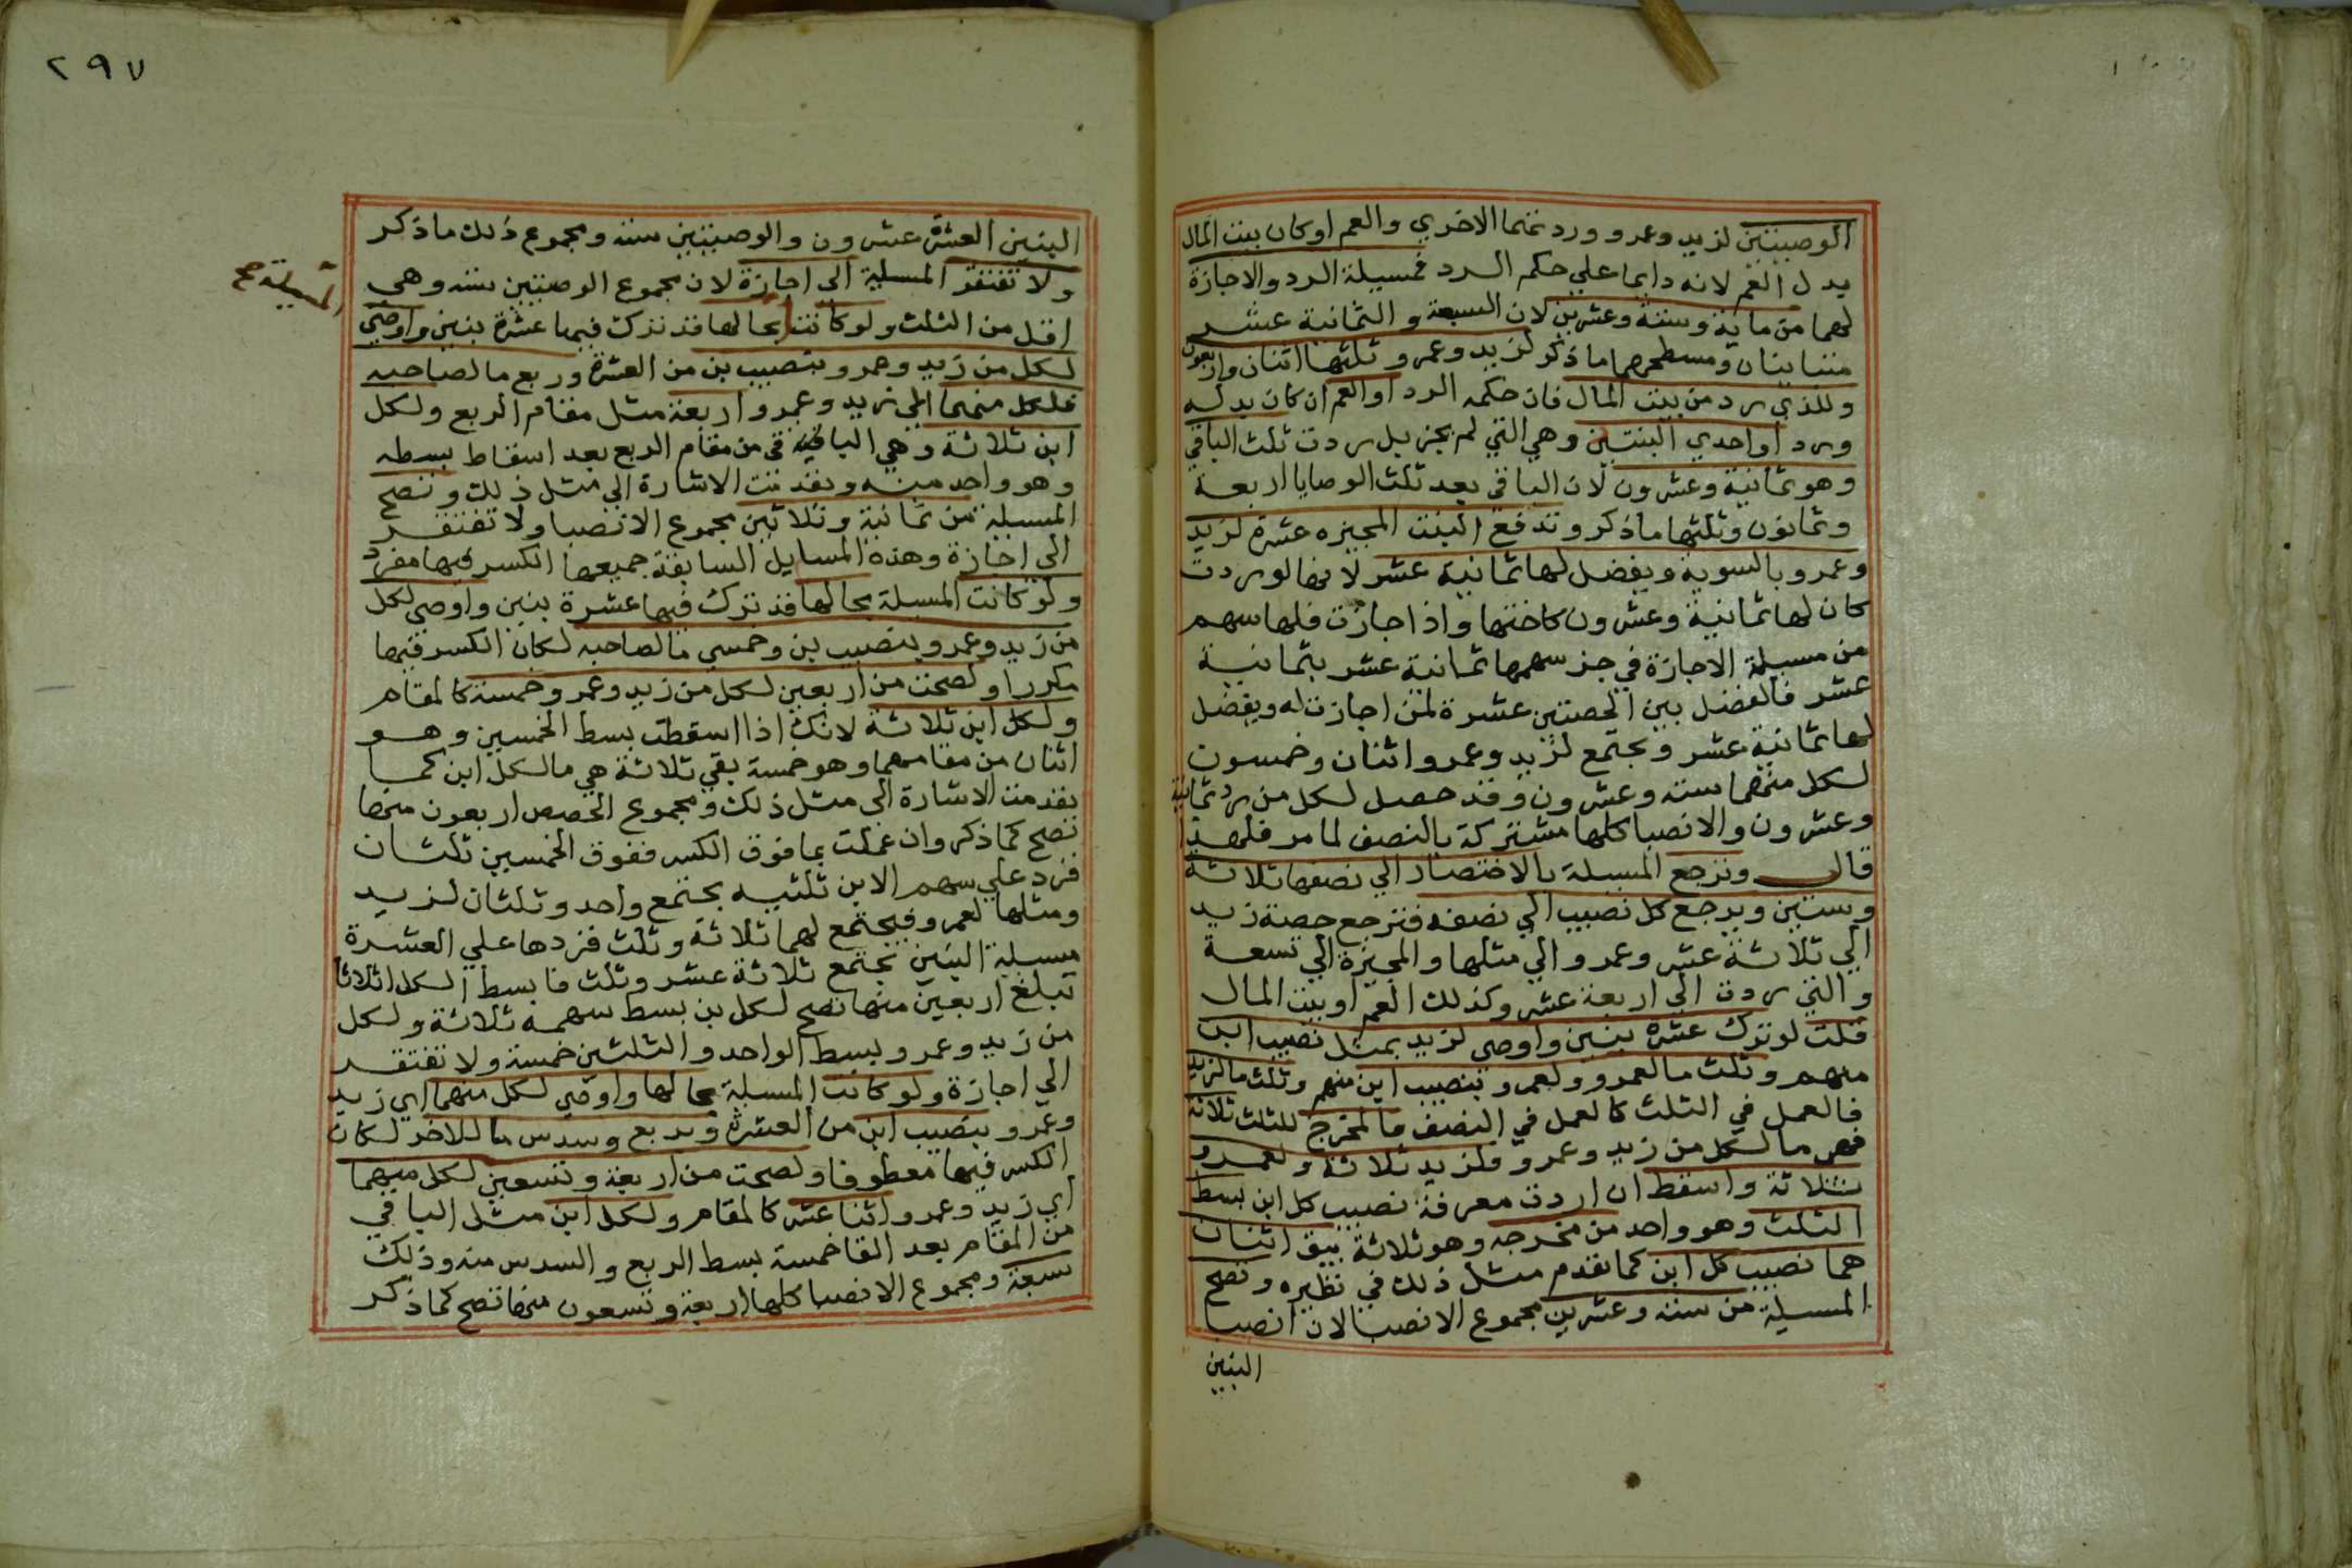 الوصيتين لزيد وعمرو وردتهما الاخري والعم او كان بيت المال
بدل العم لانه دايما علي حكم الرد فمسيلة الرد والاجازة
لهما من ماية وستة وعشرين لان السبعة والثمانية عشر
متباينان ومسطحهما ما ذكر لزيد وعمرو ثلثها اثنان واربعون
وللذي رد من بيت المال فان حكمه الرد او العم ان كان بدله
ورد او احدي البنتين وهي التي لم تجز بل ردت ثلث الباقي
وهو ثمانية وعشرون لان الباقي بعد ثلث الوصايا اربعة
وثمانون وثلثها ما ذكر وتدفع البنت المجيزه عشرة لزيد
وعمرو بالسوية ويفضل لها ثمانية عشر لانها لو ردت
كان لها ثمانية وعشرون كاختها واذا اجازت فلها سهم
من مسيلة الاجازة في جز سهمها ثمانية عشر بثمانية
عشر فالفضل بين الحصتين عشرة لمن اجازت له ويفضل
لها ثمانية عشر ويجتمع لزيد وعمرو اثنان وخمسون
لكل منهما ستة وعشرون وقد حصل لكل من رد ثمانية
وعشرون والانصبا كلها مشتركة بالنصف لما مر فلهذا
قال وترجع المسيلة بالاختصار الي نصفها ثلاثة
وستين ويرجع كل نصيب الي نصفه فترجع حصة زيد
الي ثلاثة عشر وعمرو الي مثلها والمجيزة الي تسعة
والتي ردت الي اربعة عشر وكذلك العم او بيت المال
قلت لو ترك عشرة بنين واوصي لزيد بمثل نصيب ابن
منهم وثلث ما لعمرو ولعمرو بنصيب ابن منهم وثلث ما لزيد
فالعمل في الثلث كالعمل في النصف فالمخرج للثلث ثلاثة
فهي ما لكل من زيد وعمرو فلزيد ثلاثة ولعمرو
ثلاثة واسقط ان اردت معرفة نصيب كل ابن بسط
الثلث وهو واحد من مخرجه وهو ثلاثة يبق اثنان
هما نصيب كل ابن كما تقدم مثل ذلك في نظيره وتصح
المسيلة من ستة وعشرين مجموع الانصبا لان انصبا
البنين
٢٩٧
البنين العشرة عشرون والوصيتين ستة ومجموع ذلك ما ذكر
ولا تفتقر المسيلة الي اجازة لان مجموع الوصيتين ستة وهي
اقل من الثلث ولو كانت بحالها قد ترك فيها عشرة بنين واوصي
المسيلة صح
لكل من زيد وعمرو بنصيب بن من العشرة وربع ما لصاحبه
فلكل منهما اي زيد وعمرو اربعة مثل مقام الربع ولكل
ابن ثلاثة وهي الباقية من مقام الربع بعد اسقاط بسطه
وهو واحد منه وتقدمت الاشارة الي مثل ذلك وتصح
المسيلة من ثمانية وثلاثين مجموع الانصبا ولا تفتقر
الي اجازة وهذه المسايل السابقة جميعها الكسر فيها مفرد
ولو كانت المسيلة بحالها قد ترك فيها عشرة بنين واوصي لكل
من زيد وعمرو بنصيب بن وخمسي ما لصاحبه لكان الكسر فيها
مكررا ولصحت من اربعين لكل من زيد وعمرو خمسة كالمقام
ولكل ابن ثلاثة لانك اذا اسقطت بسط الخمسين وهو
اثنان من مقامهما وهو خمسة بقي ثلاثة هي ما لكل ابن كما
تقدمت الاشارة الي مثل ذلك ومجموع الحصص اربعون منها
تصح كما ذكر وان عملت بما فوق الكسر ففوق الخمسين ثلثان
فزد علي سهم الابن ثلثيه يجتمع واحد وثلثان لزيد
ومثلها لعمرو فيجتمع لهما ثلاثة وثلث فزدها علي العشرة
مسيلة البنين يجتمع ثلاثة عشر وثلث فابسط الكل اثلاثا
تبلغ اربعين منها تصح لكل بن بسط سهمه ثلاثة ولكل
من زيد وعمرو بسط الواحد والثلثين خمسة ولا تفتقر
الي اجازة ولو كانت المسيلة بحالها واوصي لكل منهما اي زيد
وعمرو بنصيب ابن من العشرة وبربع وسدس ما للاخر لكان
الكسر فيها معطوفا ولصحت من اربعة وتسعين لكل منهما
اي زيد وعمرو اثنا عشر كالمقام ولكل ابن مثل الباقي
من المقام بعد القا خمسة بسط الربع والسدس منه وذلك
سبعة ومجموع الانصبا كلها اربعة وتسعون منها تصح كما ذكر